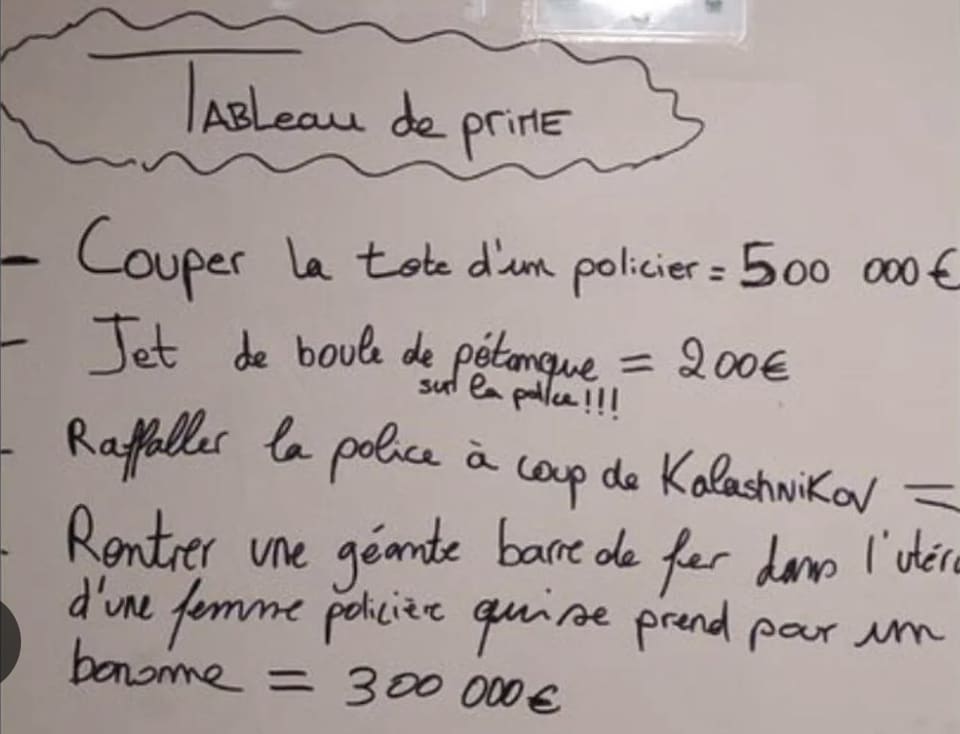 Tableau de prime
- Couper la tete d'un policier = 500 000 €
- Jet de boule de pétanque = 200€
sur la police !!!
- Raffaller la police à coup de Kalashnikov =
- Rentrer une géante barre de fer dans l'utér
d'une femme policière qui se prend pour un
bonomme = 300 000€